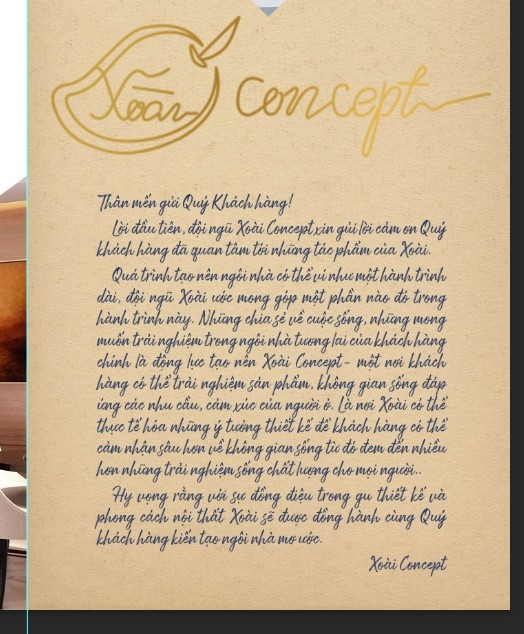 Xoài Concept
Thân mến gửi Quý Khách hàng!
Lời đầu tiên, đội ngũ Xoài Concept xin gửi lời cảm ơn Quý
khách hàng đã quan tâm tới những tác phẩm của Xoài.
Quá trình tạo nên ngôi nhà có thể ví như một hành trình
dài, đội ngũ Xoài ước mong góp một phần nào đó trong
hành trình này. Những chia sẻ về cuộc sống, những mong
muốn trải nghiệm trong ngôi nhà tương lai của khách hàng
chính là động lực tạo nên Xoài Concept- một nơi khách
hàng có thể trải nghiệm sản phẩm, không gian sống đáp
ứng các nhu cầu, cảm xúc của người ở. Là nơi Xoài có thể
thực tế hóa những ý tưởng thiết kế để khách hàng có thể
cảm nhận sâu hơn về không gian sống từ đó đem đến nhiều
hơn những trải nghiệm sống chất lượng cho mọi người..
Hy vọng rằng với sự đồng điệu trong gu thiết kế và
phong cách nội thất Xoài sẽ được đồng hành cùng Quý
khách hàng kiến tạo ngôi nhà mơ ước.
Xoài Concept